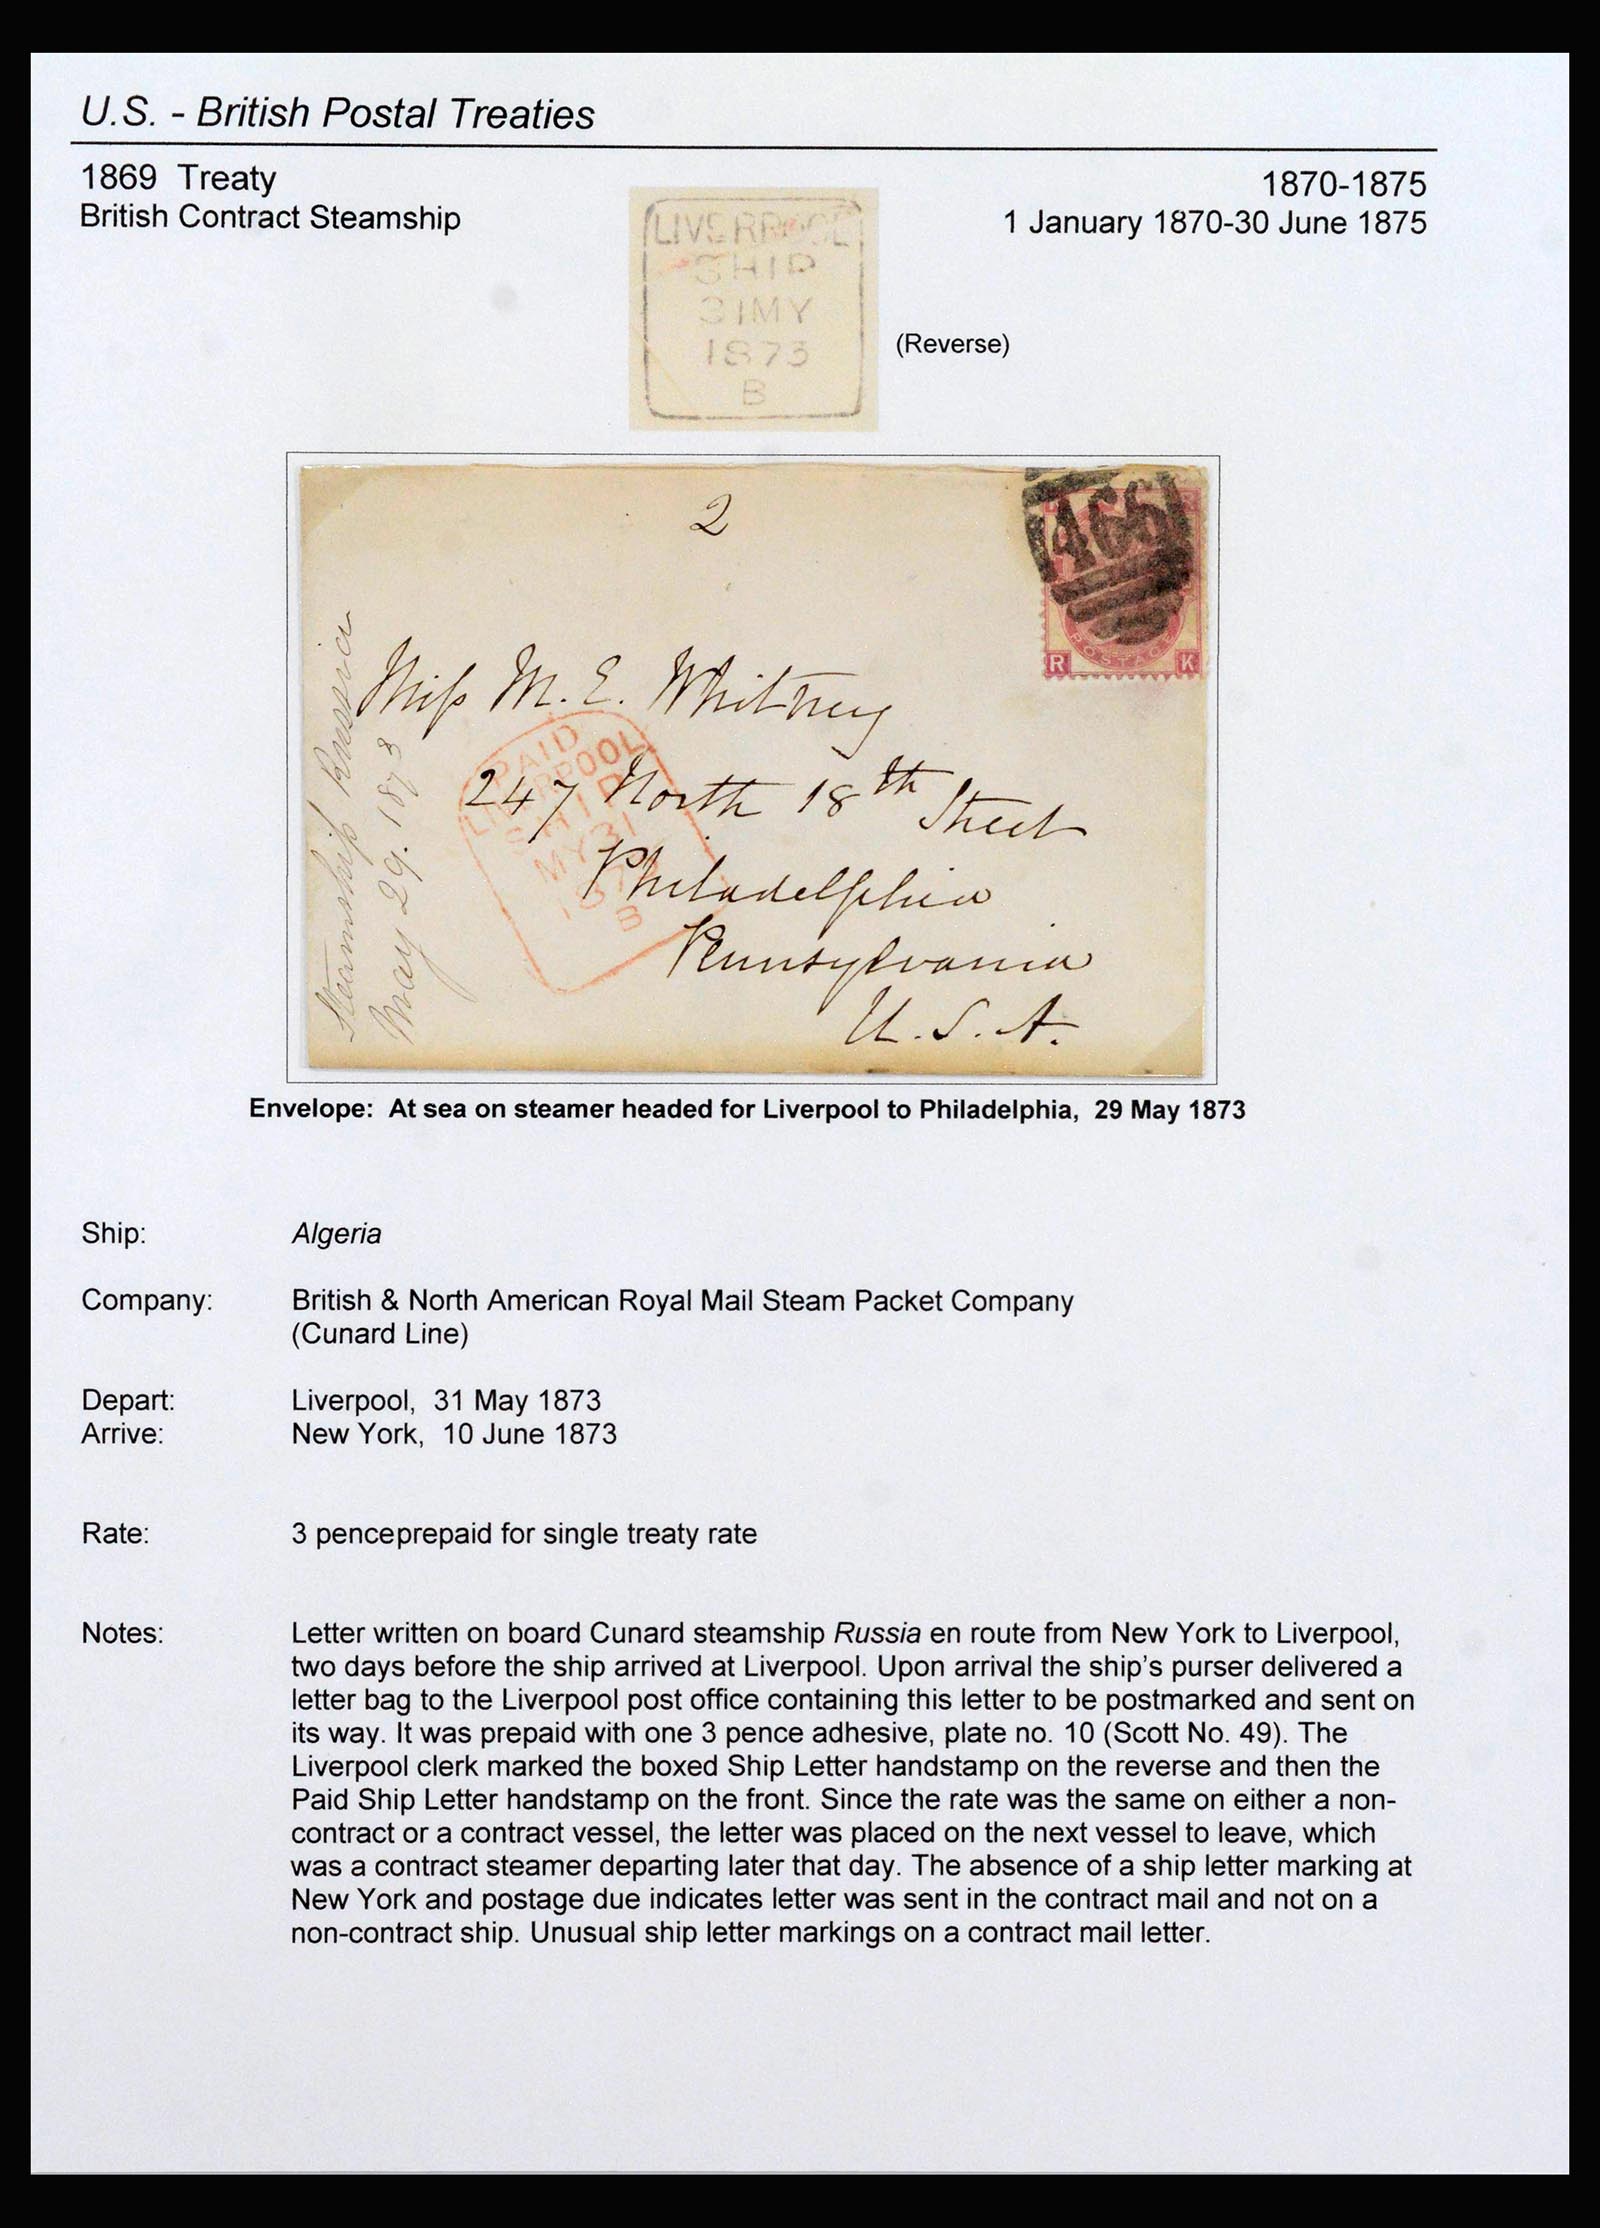 U.S. - British Postal Treaties
1869 Treaty
1870-1875
British Contract Steamship
1 January 1870-30 June 1875
LIVERPOOL
SHIP
31MY
1873
B
(Reverse)
2
466
R K
POSTAGE
Steamship Russia
May 29. 1873
Miss M. E. Whitney
247 North 18th Street
Philadelphia
Pennsylvania
U. S. A.
PAID
LIVERPOOL
SHIP
MY31
187
B
Envelope: At sea on steamer headed for Liverpool to Philadelphia, 29 May 1873
Ship: Algeria
Company: British & North American Royal Mail Steam Packet Company
(Cunard Line)
Depart: Liverpool, 31 May 1873
Arrive: New York, 10 June 1873
Rate: 3 penceprepaid for single treaty rate
Notes: Letter written on board Cunard steamship Russia en route from New York to Liverpool,
two days before the ship arrived at Liverpool. Upon arrival the ship's purser delivered a
letter bag to the Liverpool post office containing this letter to be postmarked and sent on
its way. It was prepaid with one 3 pence adhesive, plate no. 10 (Scott No. 49). The
Liverpool clerk marked the boxed Ship Letter handstamp on the reverse and then the
Paid Ship Letter handstamp on the front. Since the rate was the same on either a non-
contract or a contract vessel, the letter was placed on the next vessel to leave, which
was a contract steamer departing later that day. The absence of a ship letter marking at
New York and postage due indicates letter was sent in the contract mail and not on a
non-contract ship. Unusual ship letter markings on a contract mail letter.